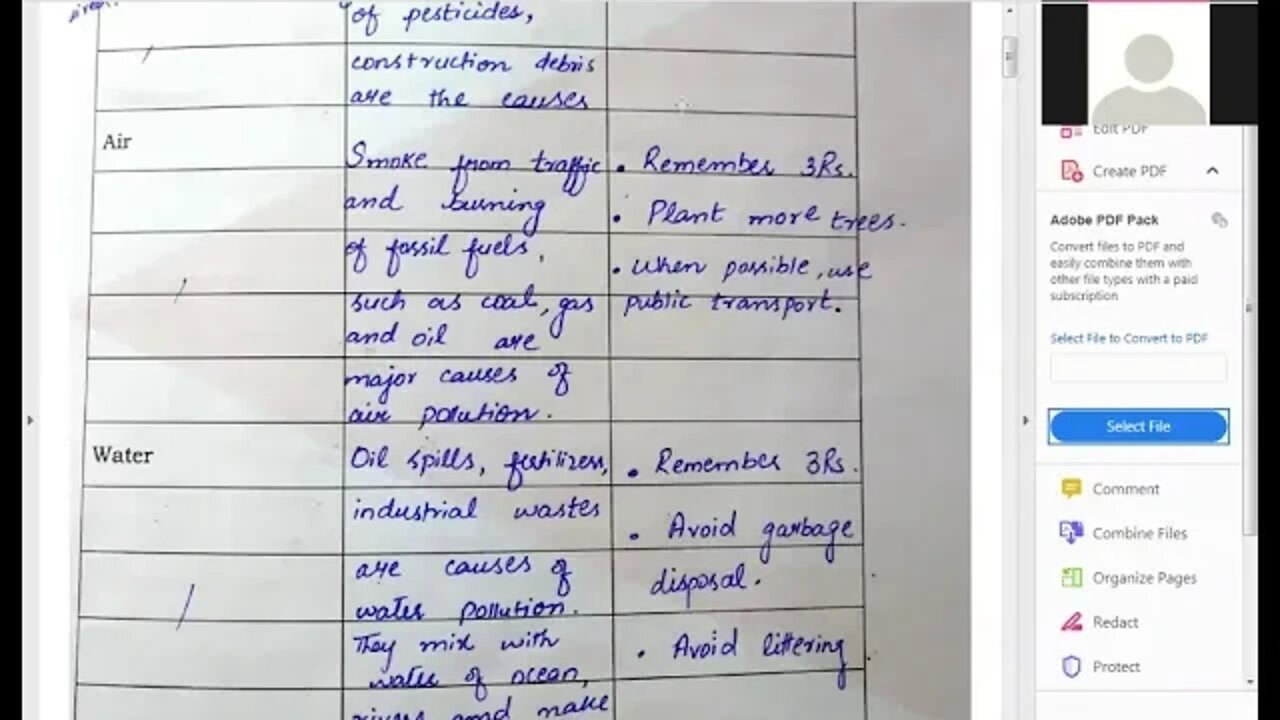 of pesticides,
construction debris
are the causes
Air
Smoke from traffic
and burning
of fossil fuels,
such as coal, gas
and oil are
major causes of
air polution.
• Remember 3Rs.
• Plant more trees.
• When possible, use
public transport.
Water
Oil spills, fertilizers,
industrial wastes
are causes of
water pollution.
They mix with
water of ocean,
rivers and make
• Remember 3Rs.
• Avoid garbage
disposal.
• Avoid littering
Edit PDF
Create PDF
Adobe PDF Pack
Convert files to PDF and
easily combine them with
other file types with a paid
subscription
Select File to Convert to PDF
Select File
Comment
Combine Files
Organize Pages
Redact
Protect